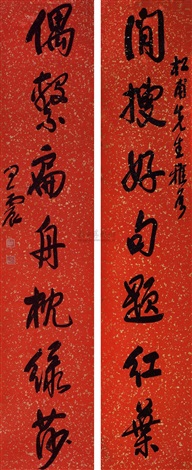 松雨先生雅属
閒搜好句題紅葉
偶繫扁舟枕綠莎
王震